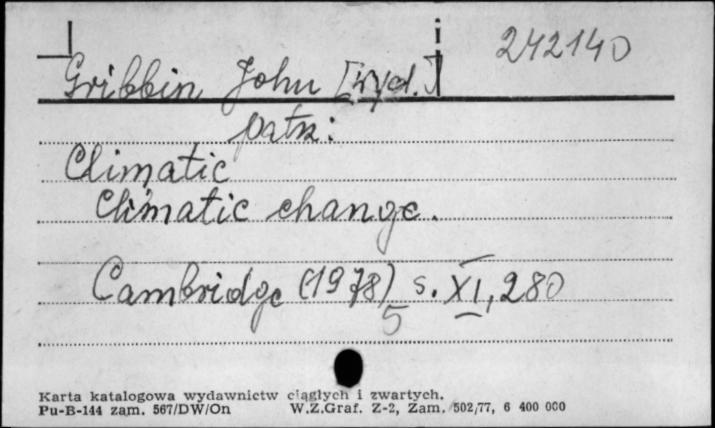 242140
Gribbin John [wyd.]
patrz:
Climatic
Climatic change.
Cambridge (1978) s. XI, 280
5
Karta katalogowa wydawnictw ciągłych i zwartych.
Pu-B-144 zam. 567/DW/On W.Z.Graf. Z-2, Zam. 502/77, 6 400 000